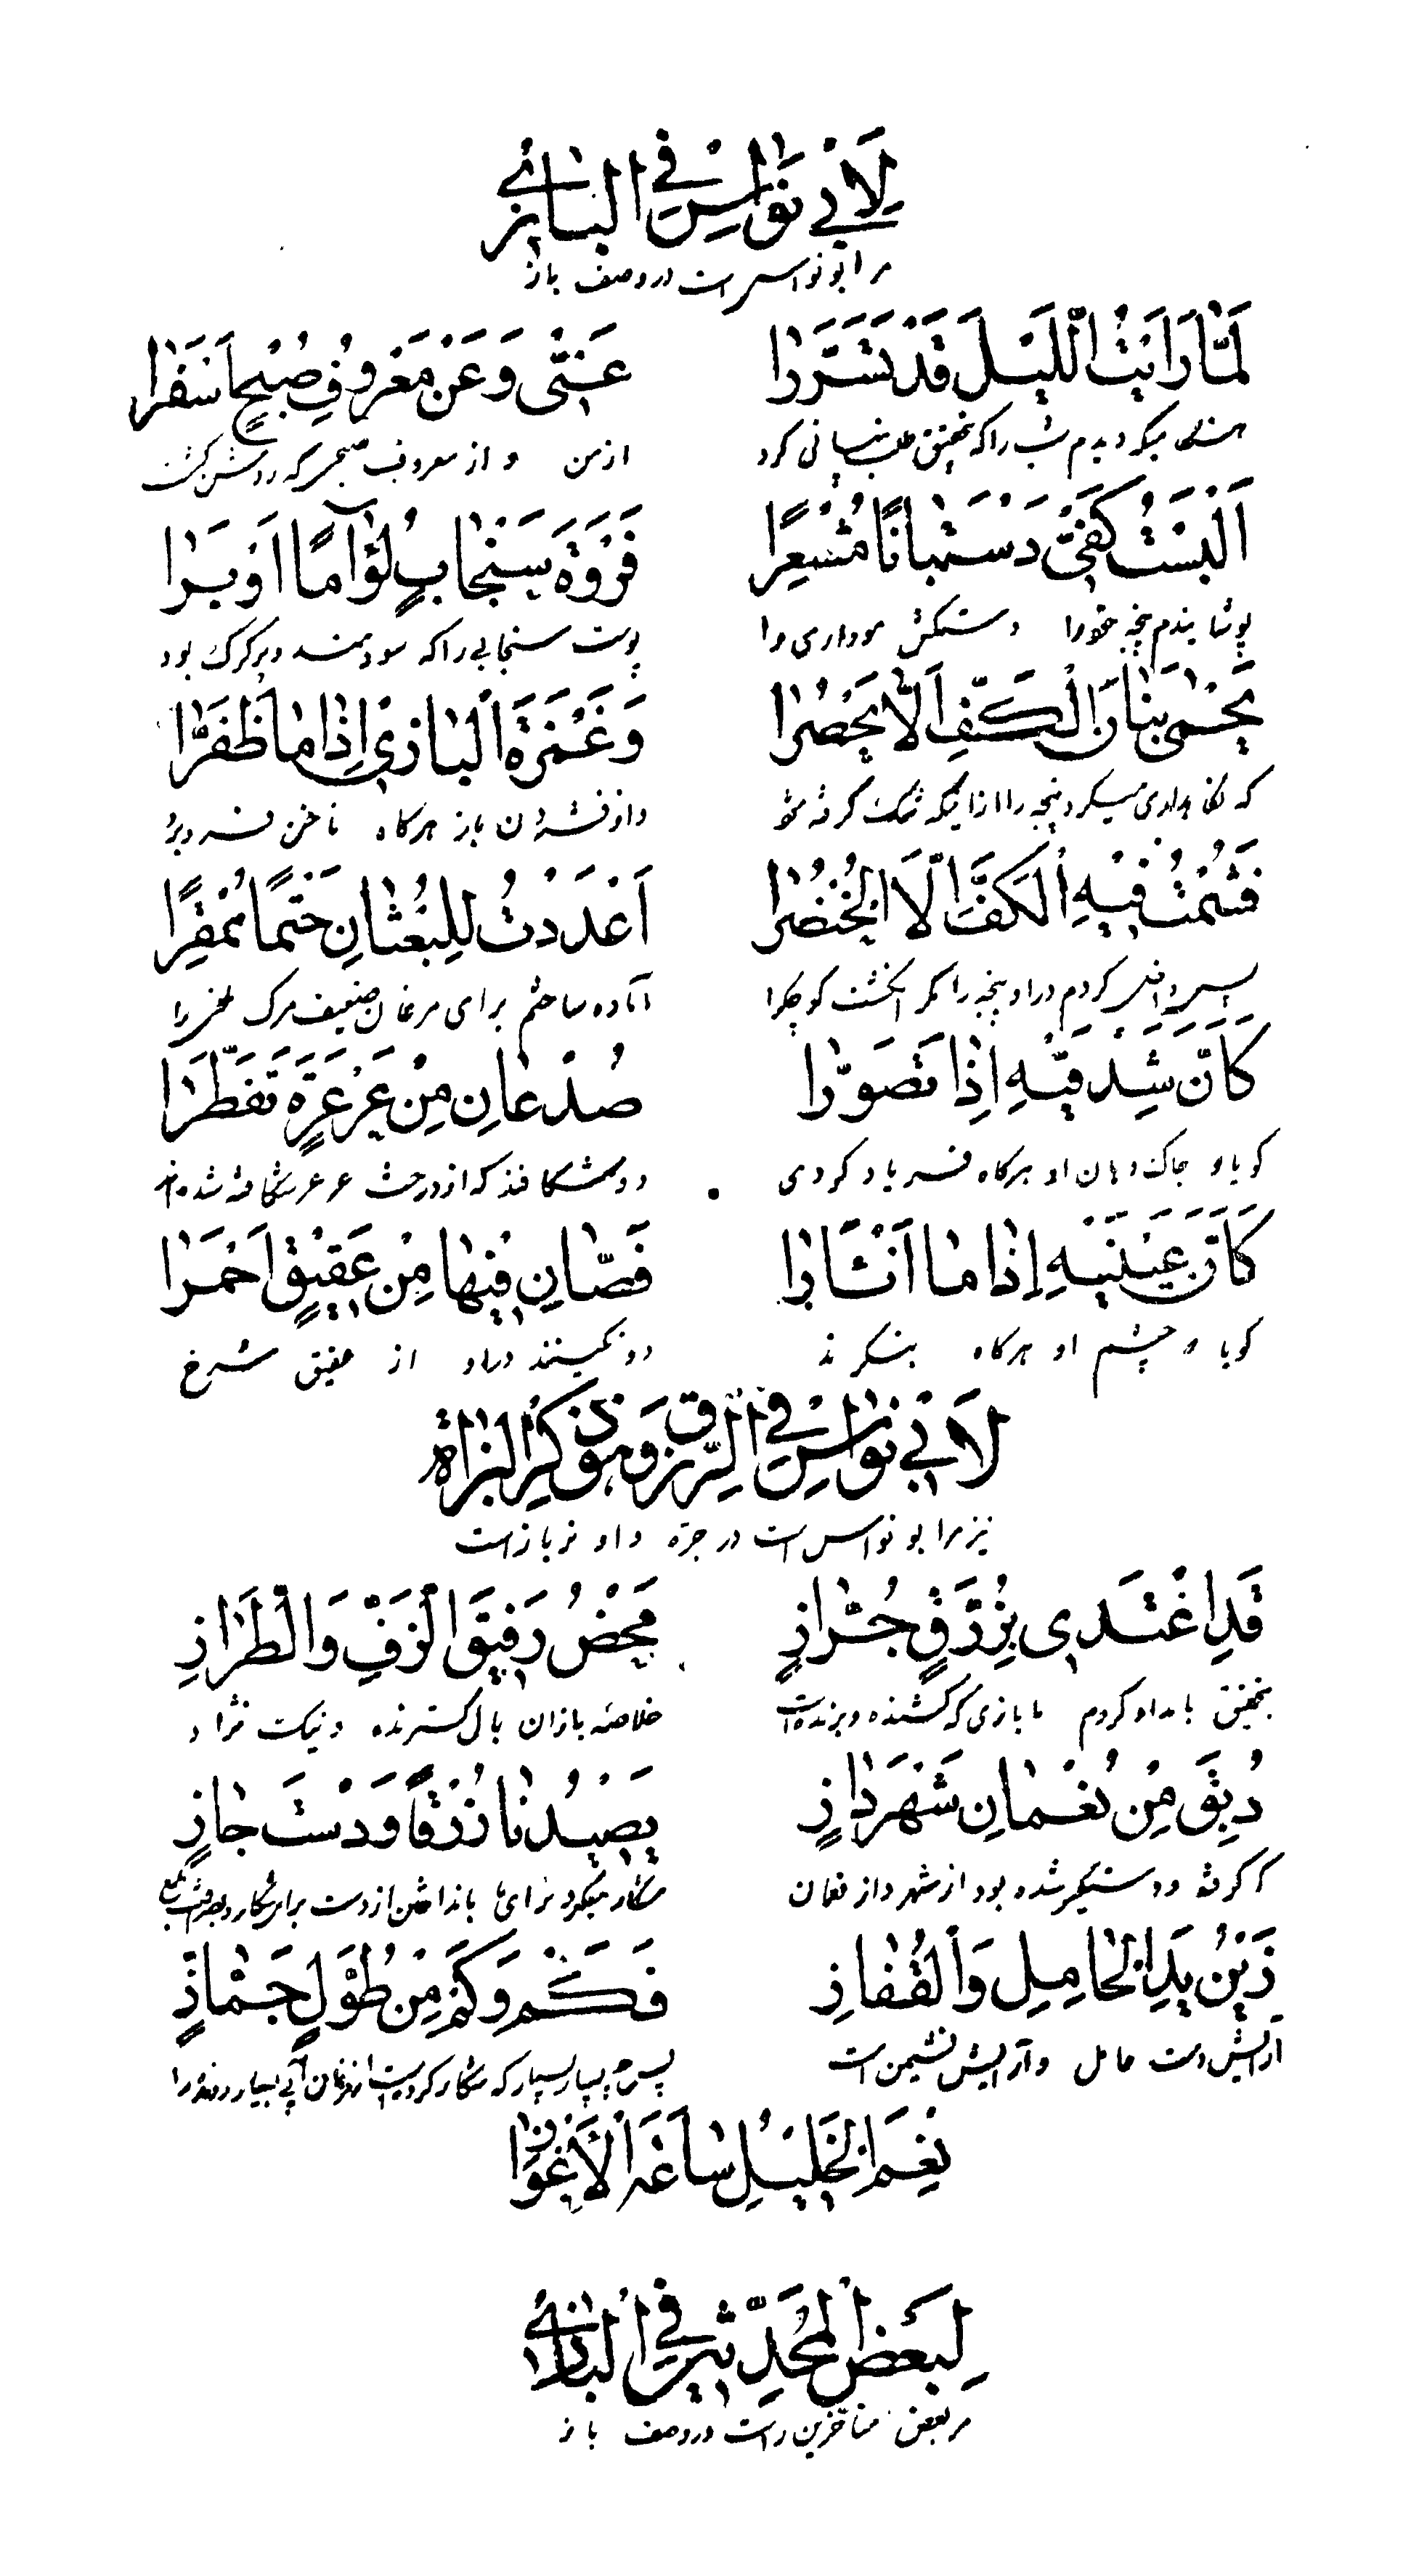 لِاَبي نَوٰاسٍ في البٰازي
مر ابو نواس راست در وصف باز
لَمّٰا رَاَيْتُ اللَّيْلَ قَدْ تَسَرَّرٰا عَنّي وَ عَنْ مَعْرُوفِ صُبْحٍ اَسْفَرٰا
هنگامیکه دیدم شب را که بتحقیق طلب پنهانی کرد از من و از معروف صبحی که روشن گشت
اَلْبَسْتُ كَفّي دَسْتَبٰانًا مُشْعِرًا فَرْوَةَ سَنْجٰابٍ لُؤٰامًا اَوْبَرٰا
پوشانیدم پنجه خود را دستکش موداری را پوست سنجابی را که سودمند و پرکرک بود
يَحْمي بَنٰانَ الْكَفِّ اَلّٰا يَخْصُرٰا وَ غَمْزَةَ الْبٰازي اِذٰا مٰا ظَفَّرٰا
که نگاهداری میکرد پنجه را از اینکه گرفته شود و از فشردن باز هرگاه ناخن فرو برد
فَشِمْتُ فيهِ الْكَفَّ اِلَّا الْخُنْصُرٰا اَعْدَدْتُ لِلْبُغْثٰانِ حَتْمًا مُمْقِرًا
پس داخل کردم در او پنجه را مگر انگشت کوچک را آماده ساختم برای مرغان ضعیف مرگ تلخی را
كَاَنَّ شِدْقَيْهِ اِذٰا تَضَوَّرٰا صُدْغٰانِ مِنْ عَرْعَرَةٍ تَفَطَّرٰا
گویا دو چاک دهان او هرگاه فریاد کردی دو شکافند که از درخت عرعر شکافته شده‌اند
كَاَنَّ عَيْنَيْهِ اِذٰا مٰا اَثْاَرٰا فَصّٰانِ فيهٰا مِنْ عَقيقٍ اَحْمَرٰا
گویا دو چشم او هرگاه بنگرند دو نگینند در او از عقیق سرخ
لِاَبي نَوٰاسٍ في الزُّرَّقِ وَ هُوَ ذَكَرُ الْبُزٰاةِ
نیز مر ابو نواس راست در جرّه و او نر باز است
قَدْ اَغْتَدي بِزُرَّقٍ جُرٰازٍ مَحْضٍ رَقيقِ الزَّفِّ وَ الطِّرٰازِ
بتحقیق بامداد کردم با بازی که کشنده و برنده است خلاصه بازان بال گسترنده و نیک نژاد
دُبِقَ مِنْ نُعْمٰانِ شَهْرَدٰازٍ يَصيدُنٰا زُرْقًا وَ دَسْتَ جٰازٍ
که گرفته و دستگیر شده بود از شهرداز نعمان شکار میکرد برای ما بانداختن از دست برای شکار
زَيْنُ يَدِ الْحٰامِلِ وَ الْقُفّٰازِ فَكَمْ وَ كَمْ مِنْ طُوَّلٍ جَمّٰازٍ
آرایش دست حامل و آرایش نشیمن است پس چه بسیار بسیار که شکار کرده است از مرغان آبی بسیار رونده را
نِعْمَ الْخَليلُ سٰاعَةَ الْاَعْوٰازِ
لِبَعْضِ الْمُحَدِّثينَ في الْبٰازي
مر بعض متأخرین راست در وصف باز